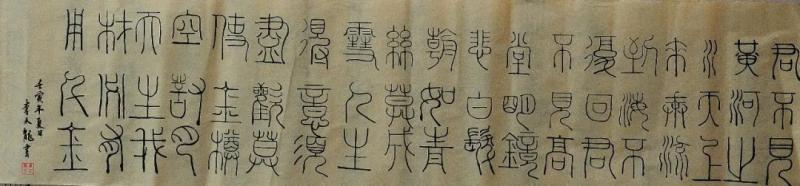 君不見
黃河之
水天上
來奔流
到海不
復回君
不見高
堂明鏡
悲白髮
朝如青
絲莫成
雪人生
得意須
盡歡莫
使金樽
空對月
天生我
材必有
用千金
壬寅年夏日
李龍書